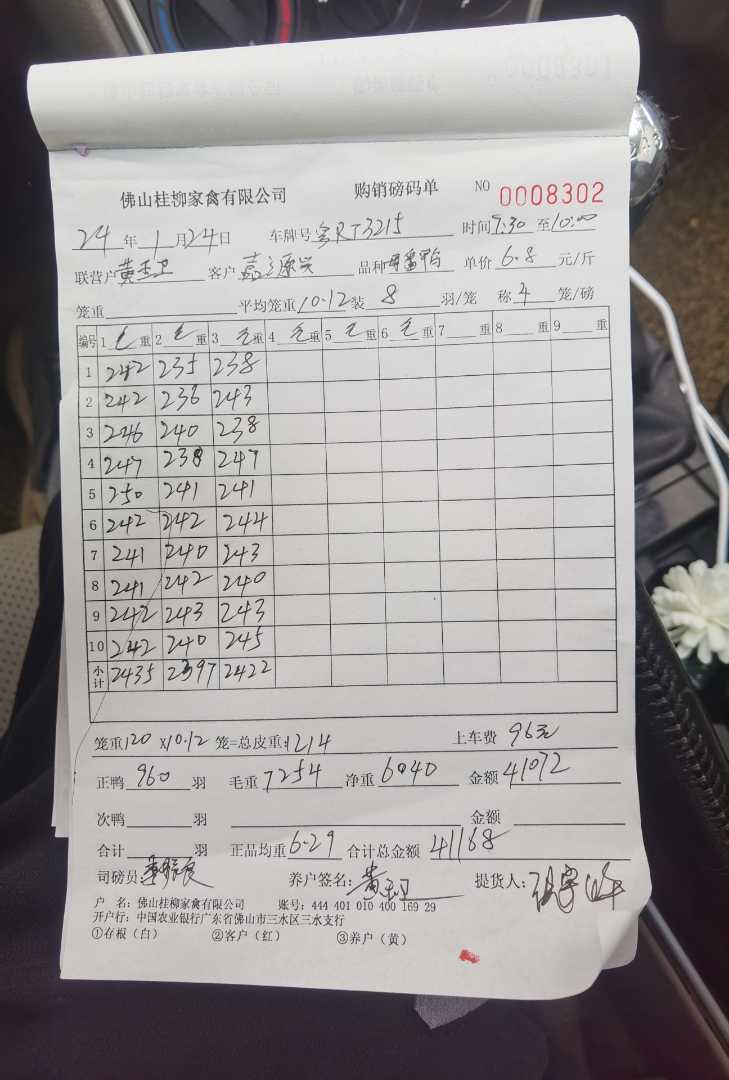 佛山桂柳家禽有限公司 购销磅码单 NO 0008302
24年1月24日 车牌号粤RT3215 时间9:30至10:00
联营户黄玉卫 客户嘉源兴 品种 单价6.8元/斤
笼重 平均笼重10.12装8羽/笼 称4笼/磅
编号 1毛重 2毛重 3毛重 4毛重 5毛重 6毛重 7重 8重 9重
1 242 235 238
2 242 236 243
3 246 240 238
4 247 238 247
5 250 241 241
6 242 242 244
7 241 240 243
8 241 242 240
9 242 243 243
10 242 240 245
小计 2435 2397 2422
笼重120×10.12笼=总皮重1214 上车费96元
正鸭960羽 毛重7254 净重6040 金额41072
次鸭 羽 金额
合计 羽 正品均重6.29 合计总金额41168
司磅员: 养户签名:黄玉卫 提货人:
户 名:佛山桂柳家禽有限公司 账号:444 401 010 400 169 29
开户行:中国农业银行广东省佛山市三水区三水支行
①存根(白) ②客户(红) ③养户(黄)